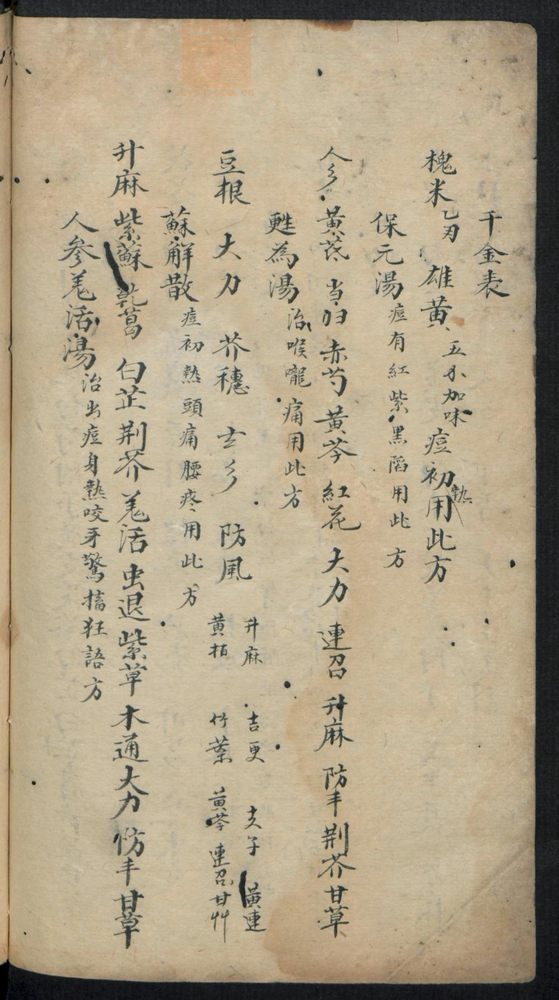 千金表
槐米乙刃 雄黃 五分加味 痘初熱用此方
保元湯 痘有紅紫黑陷用此方
人彡 黃芪 当归 赤芍 黃芩 紅花 大力 連召 升麻 防丰 荆芥 甘草
甦為湯 治喉嚨痛用此方
豆根 大力 芥穗 玄彡 防風
升麻 吉更 支子 黃連
黃栢 竹葉 黃芩 連召 甘艸
蘇解散 痘初熱頭痛腰疼用此方
升麻 紫蘇 乾葛 白芷 荆芥 羌活 虫退 紫草 木通 大力 防丰 甘草
人參羌活湯 治出痘身熱咬牙驚搐狂語方